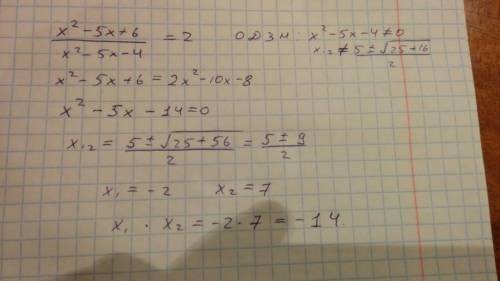 (x² - 5x + 6) / (x² - 5x - 4) = 2   ОДЗН: x² - 5x - 4 ≠ 0
x₁₂ ≠ (5 ± √25 + 16) / 2
x² - 5x + 6 = 2x² - 10x - 8
x² - 5x - 14 = 0
x₁₂ = (5 ± √25 + 56) / 2 = (5 ± 9) / 2
x₁ = -2   x₂ = 7
x₁ · x₂ = -2 · 7 = -14.